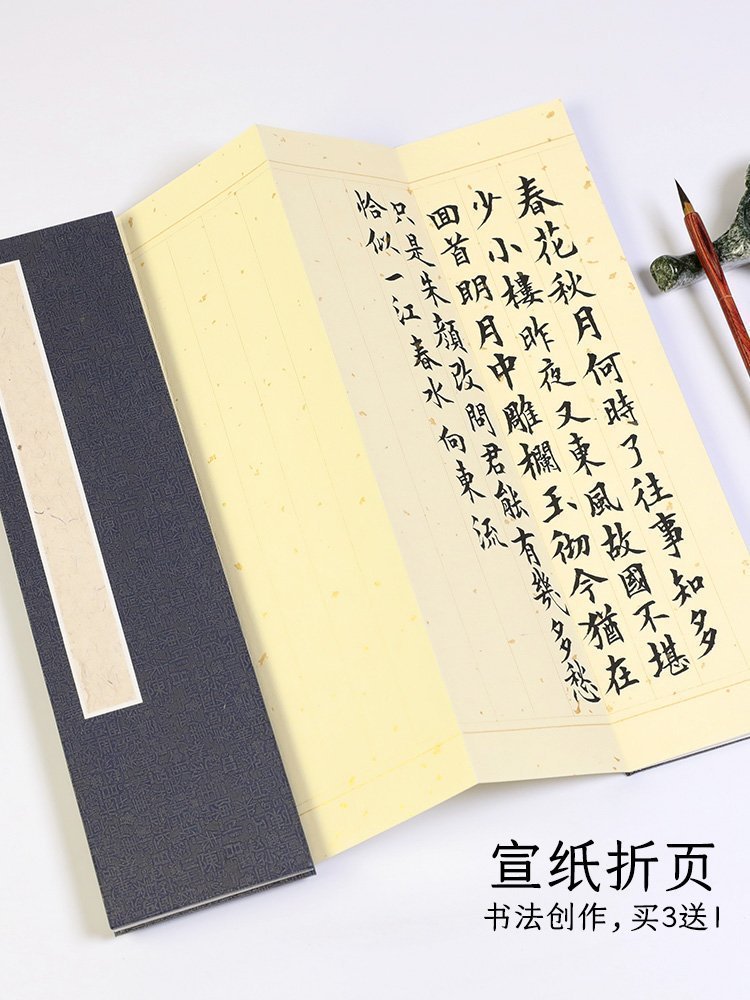 春花秋月何時了往事知多
少小樓昨夜又東風故國不堪
回首明月中雕欄玉彻今猶在
只是朱顔改問君能有幾多愁
恰似一江春水向東流
宣纸折页
书法创作,买3送1